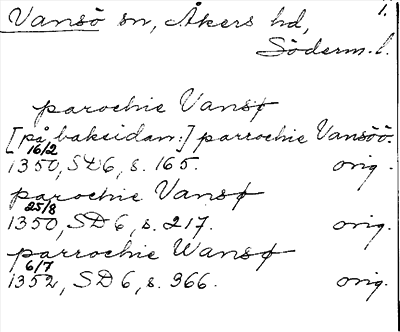 1.
Vansö sn, Åkers hd,
Söderm. l.
parochie Vansø
[på baksidan:] parrochie Vansöö.
16/2
1350, SD 6, s. 165. orig.
parochie Vansø
25/8
1350, SD 6, s. 217. orig.
parrochie Wansø
6/7
1352, SD 6, s. 366. orig.